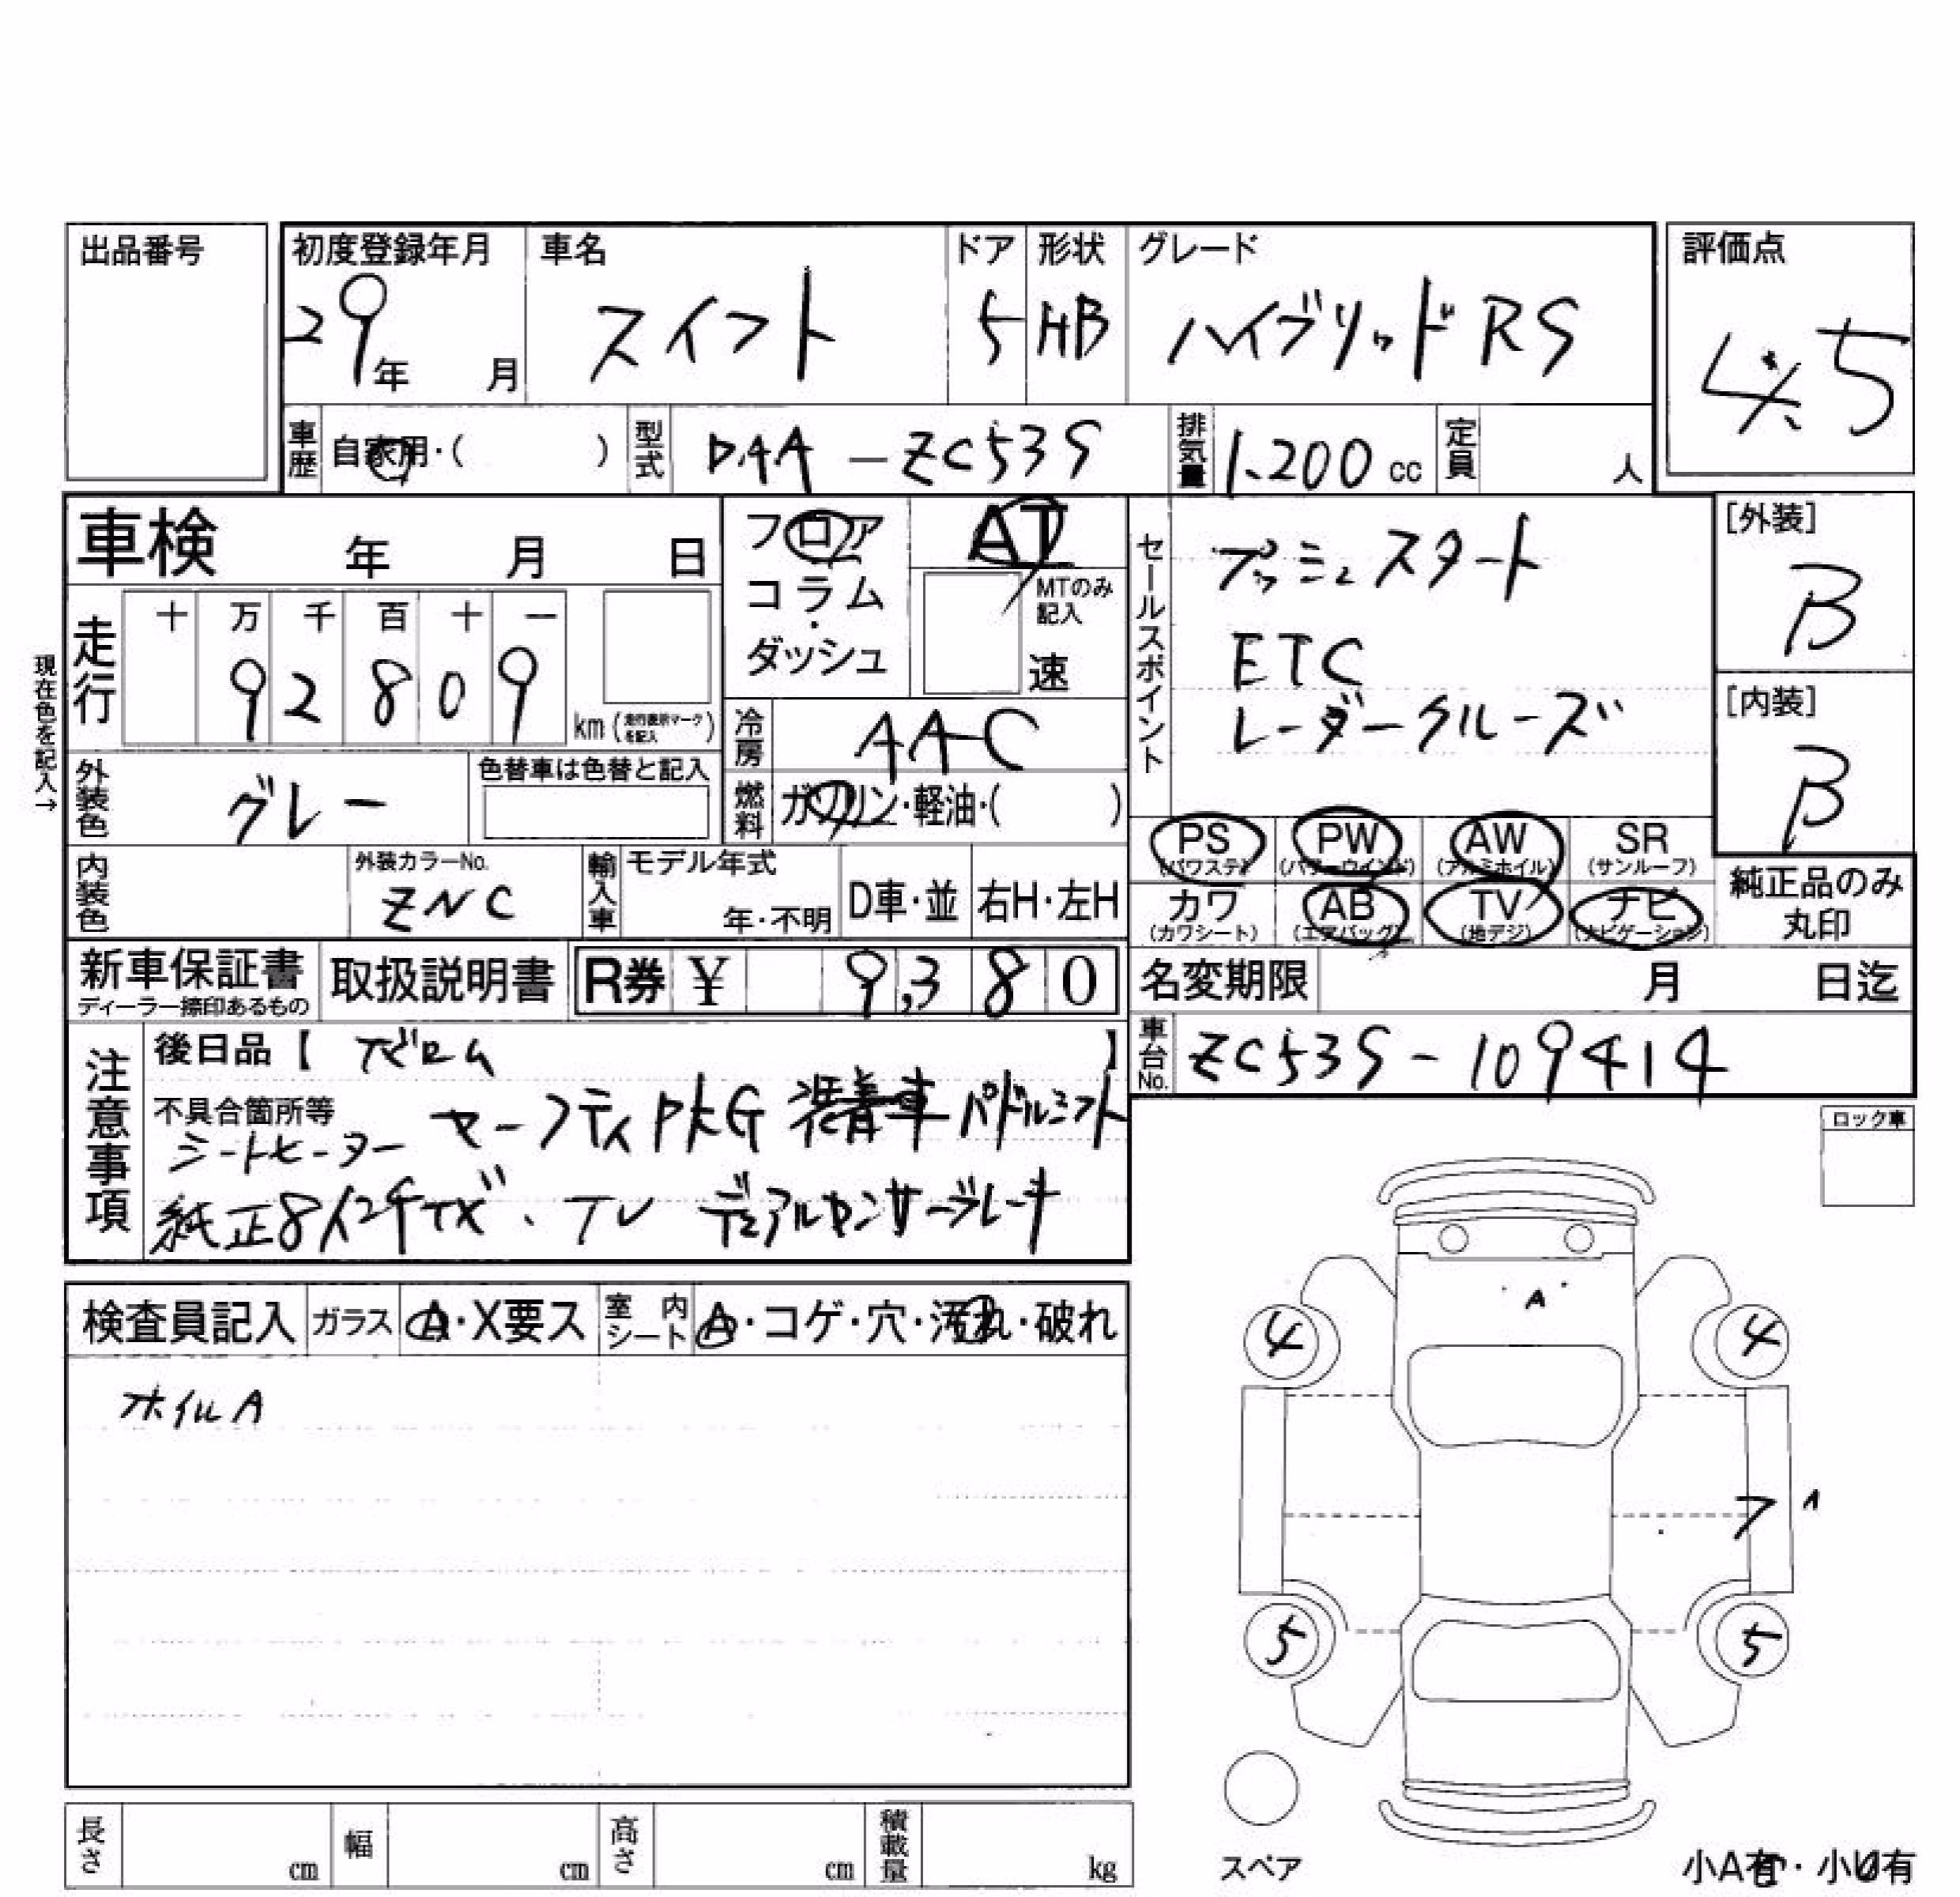 出品番号
初度登録年月 車名 ドア 形状 グレード 評価点
29年 月 スイフト 5 HB ハイブリッド RS 4.5
車歴 自家用・( ) 型式 DAA-ZC53S 排気量 1.200 cc 定員 人
車検 年 月 日
フロア・コラム・ダッシュ
AT
MTのみ記入
速
セールスポイント
プッシュスタート
ETC
レーダークルーズ
[外装]
B
[内装]
B
現在色を記入→
走行 十 万 千 百 十 一
9 2 8 0 9
km (走行表示マークを記入)
冷房 AAC
燃料 ガソリン・軽油・( )
外装色 グレー 色替車は色替と記入
PS (パワステ) PW (パワーウインド) AW (アルミホイル) SR (サンルーフ)
カワ (カワシート) AB (エアバッグ) TV (地デジ) ナビ (ナビゲーション)
純正品のみ丸印
内装色 外装カラーNo. ZNC 輸入車 モデル年式 年・不明 D車・並 右H・左H
新車保証書 ディーラー捺印あるもの 取扱説明書 R券 ¥ 9,380
名変期限 月 日迄
車台No. ZC53S-109414
注意事項
後日品【 ナビロム 】
不具合箇所等 セーフティPKG 装着車 パドルシフト
シートヒーター
純正8インチナビ・TV デュアルセンサーブレーキ
ロック車
検査員記入 ガラス A・X要ス 室内シート A・コゲ・穴・汚れ・破れ
ホイルA
A
4 4
ワ 1
5 5
スペア
小A有・小U有
長さ cm 幅 cm 高さ cm 積載量 kg